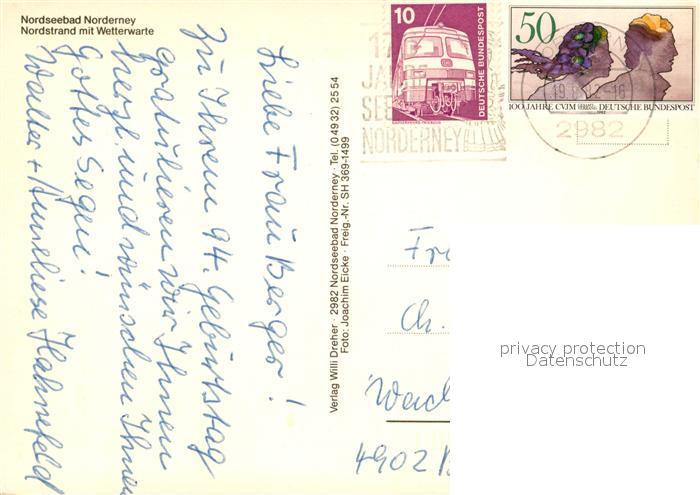 Nordseebad Norderney
Nordstrand mit Wetterwarte
Liebe Frau Berger!
Zu Ihrem 94. Geburtstag
gratulieren wir Ihnen
herzl. und wünschen Ihnen
Gottes Segen!
Walter + Anneliese Hahnefeld
Verlag Willi Dreher · 2982 Nordseebad Norderney · Tel. (0 49 32) 25 54
Foto: Joachim Eicke · Freig.-Nr. SH 369-1499
10
DEUTSCHE BUNDESPOST
50
100 JAHRE CVJM
DEUTSCHE BUNDESPOST
JA
SEE
NORDERNEY
2982
Fr
Ch.
4902
privacy protection
Datenschutz